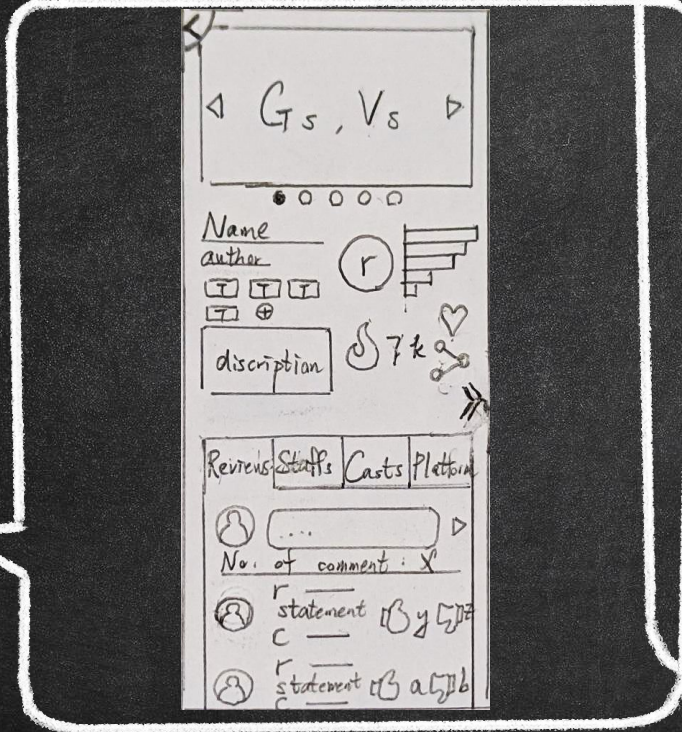 Gs, Vs
Name
author
r
T T T
T
discription
7k
Reviews Staffs Casts Platform
....
No. of comment : X
r
statement y z
c
r
statement a b
c